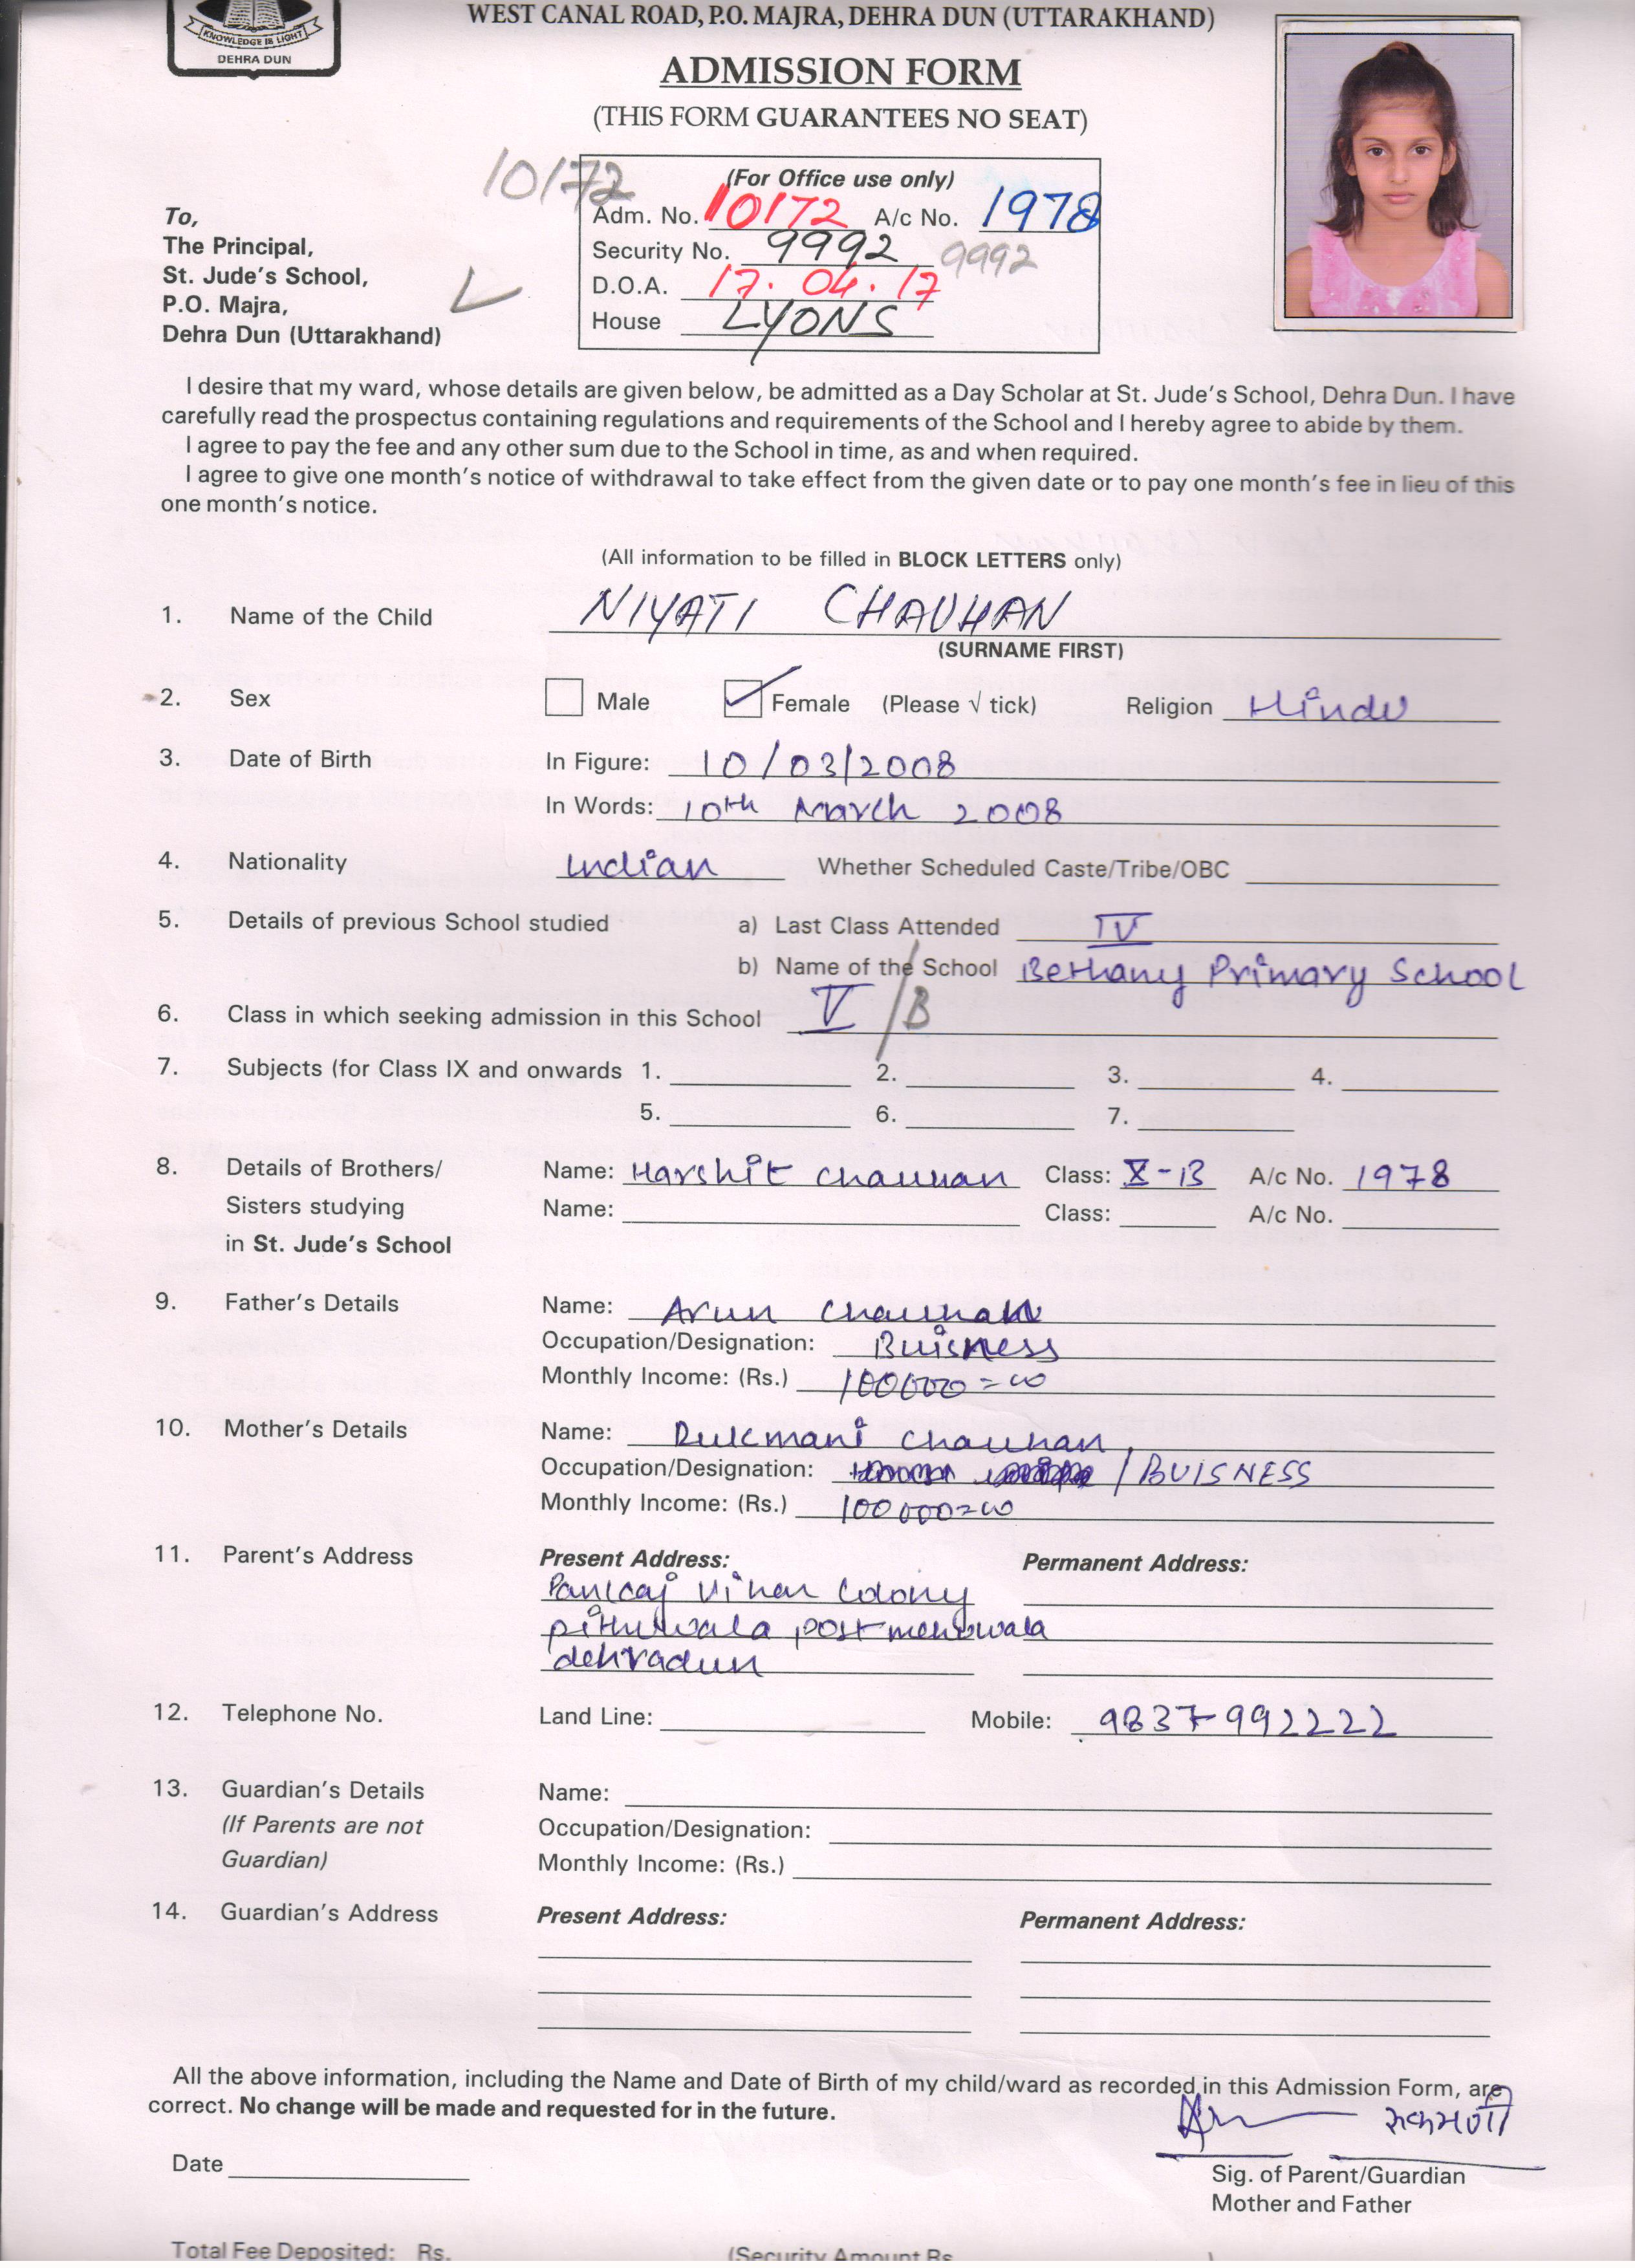 WEST CANAL ROAD, P.O. MAJRA, DEHRA DUN (UTTARAKHAND)
KNOWLEDGE IS LIGHT
DEHRA DUN
ADMISSION FORM
(THIS FORM GUARANTEES NO SEAT)
10172
(For Office use only)
Adm. No. 10172 A/c No. 1978
Security No. 9992 9992
D.O.A. 17.04.17
House LYONS
To,
The Principal,
St. Jude's School,
P.O. Majra,
Dehra Dun (Uttarakhand)
I desire that my ward, whose details are given below, be admitted as a Day Scholar at St. Jude's School, Dehra Dun. I have
carefully read the prospectus containing regulations and requirements of the School and I hereby agree to abide by them.
I agree to pay the fee and any other sum due to the School in time, as and when required.
I agree to give one month's notice of withdrawal to take effect from the given date or to pay one month's fee in lieu of this
one month's notice.
(All information to be filled in BLOCK LETTERS only)
1. Name of the Child NIYATI CHAUHAN
(SURNAME FIRST)
2. Sex Male Female (Please √ tick) Religion Hindu
3. Date of Birth In Figure: 10/03/2008
In Words: 10th March 2008
4. Nationality Indian Whether Scheduled Caste/Tribe/OBC
5. Details of previous School studied a) Last Class Attended IV
b) Name of the School Bethany Primary School
6. Class in which seeking admission in this School V /B
7. Subjects (for Class IX and onwards 1. 2. 3. 4.
5. 6. 7.
8. Details of Brothers/ Name: Harshit Chauhan Class: X-B A/c No. 1978
Sisters studying Name: Class: A/c No.
in St. Jude's School
9. Father's Details Name: Arun Chauhan
Occupation/Designation: Buisness
Monthly Income: (Rs.) 100000=00
10. Mother's Details Name: Rukmani Chauhan
Occupation/Designation: / BUISNESS
Monthly Income: (Rs.) 100000=00
11. Parent's Address Present Address: Permanent Address:
Pankaj Vihar Colony
pithuwala, post mehuwala
dehradun
12. Telephone No. Land Line: Mobile: 9837-992222
13. Guardian's Details Name:
(If Parents are not Occupation/Designation:
Guardian) Monthly Income: (Rs.)
14. Guardian's Address Present Address: Permanent Address:
All the above information, including the Name and Date of Birth of my child/ward as recorded in this Admission Form, are
correct. No change will be made and requested for in the future.
Date
Sig. of Parent/Guardian
Mother and Father
Total Fee Deposited: Rs. (Security Amount Rs. )